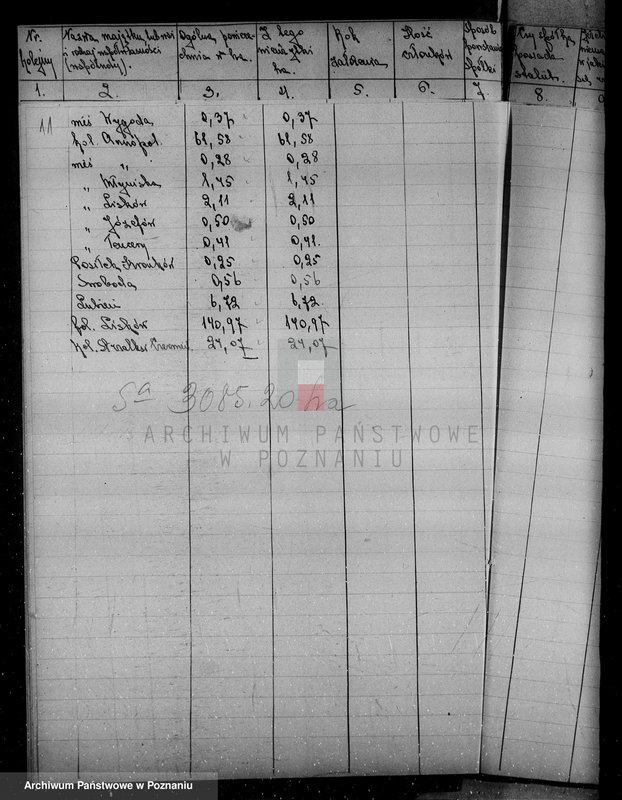 Nr. kolejny
Nazwa majątku lub wsi i rodzaj współwłasności (wspólnoty).
Ogólna powierzchnia w ha.
Z tego nieużytki ha.
Rok założenia
Ilość członków
Sposób powstania Spółki
Czy spółka posiada statut.
1. 2. 3. 4. 5. 6. 7. 8.
11 wieś Wygoda 0,37 0,37
kol. Annopol. 61,58 61,58
wieś „ 0,28 0,28
„ Młyniska 1,45 1,45
„ Lisków 2,11 2,11
„ Józefów 0,50 0,50
„ 0,41 0,41.
0,25 0,25
Swoboda 0,56 0,56
6,72 6,72
fol. Lisków 140,97 140,97
Kol. 24,07 24,07
Sa 3085.20 ha
ARCHIWUM PAŃSTWOWE
W POZNANIU
Archiwum Państwowe w Poznaniu